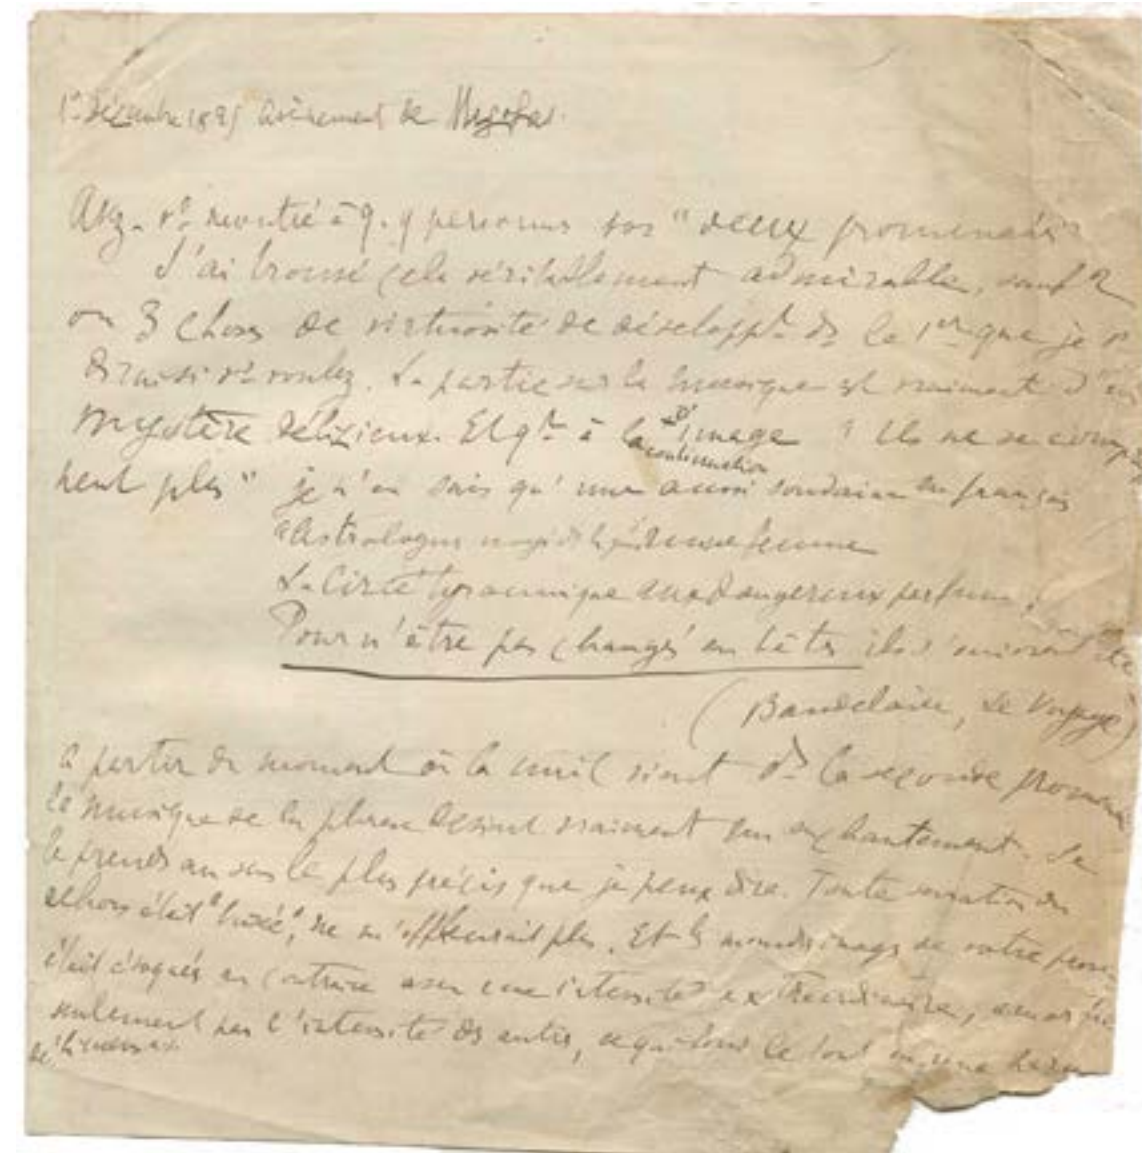 1er Décembre 1895 avènement de
Avez-vs montré à q.q personnes vos "deux promenades"
J'ai trouvé cela véritablement admirable, sauf 2
ou 3 choses de virtuosité de développt ds le 1er que je vs
dirai si vs voulez. La partie sur la musique est vraiment d'un
mystère délizieux. Et qt à la continuation d'image "Ils ne se comp
nent plus" je n'en sais qu'une aussi soudaine en français
astrologues
La Circé tyrannique aux dangereux parfums.
Pour n'être pas changés en bêtes ils s'enivrent de
(Baudelaire, Le Voyage)
à partir du moment où la nuit vient ds la seconde promena
la musique de la phrase devient vraiment un enchantement. Je
le prends au sens le plus précis que je peux dire. Toute sensation du
dehors était ne m'effleurait plus. Et les moindres images de votre
était évoqués au contraire avec une intensité extraordinaire,
seulement par l'intensité des autres, ce qui tout une